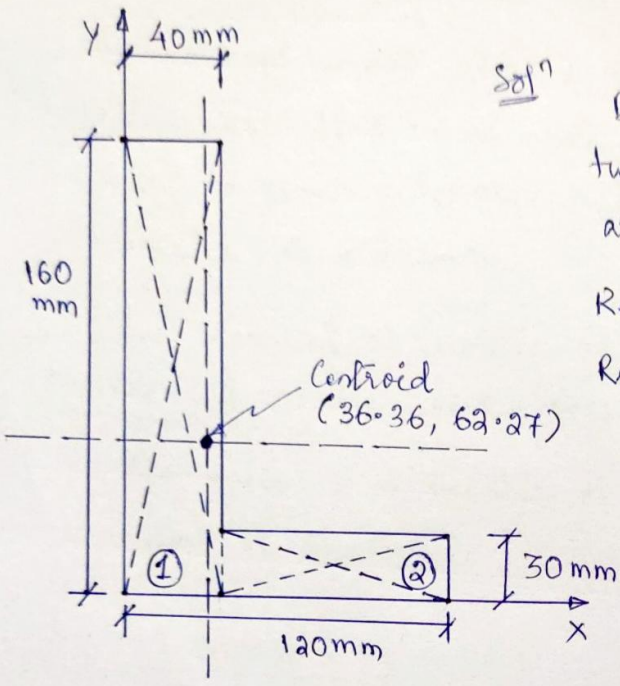 Y
40mm
Solⁿ
160
mm
Centroid
(36·36, 62·27)
①
②
30mm
X
120mm